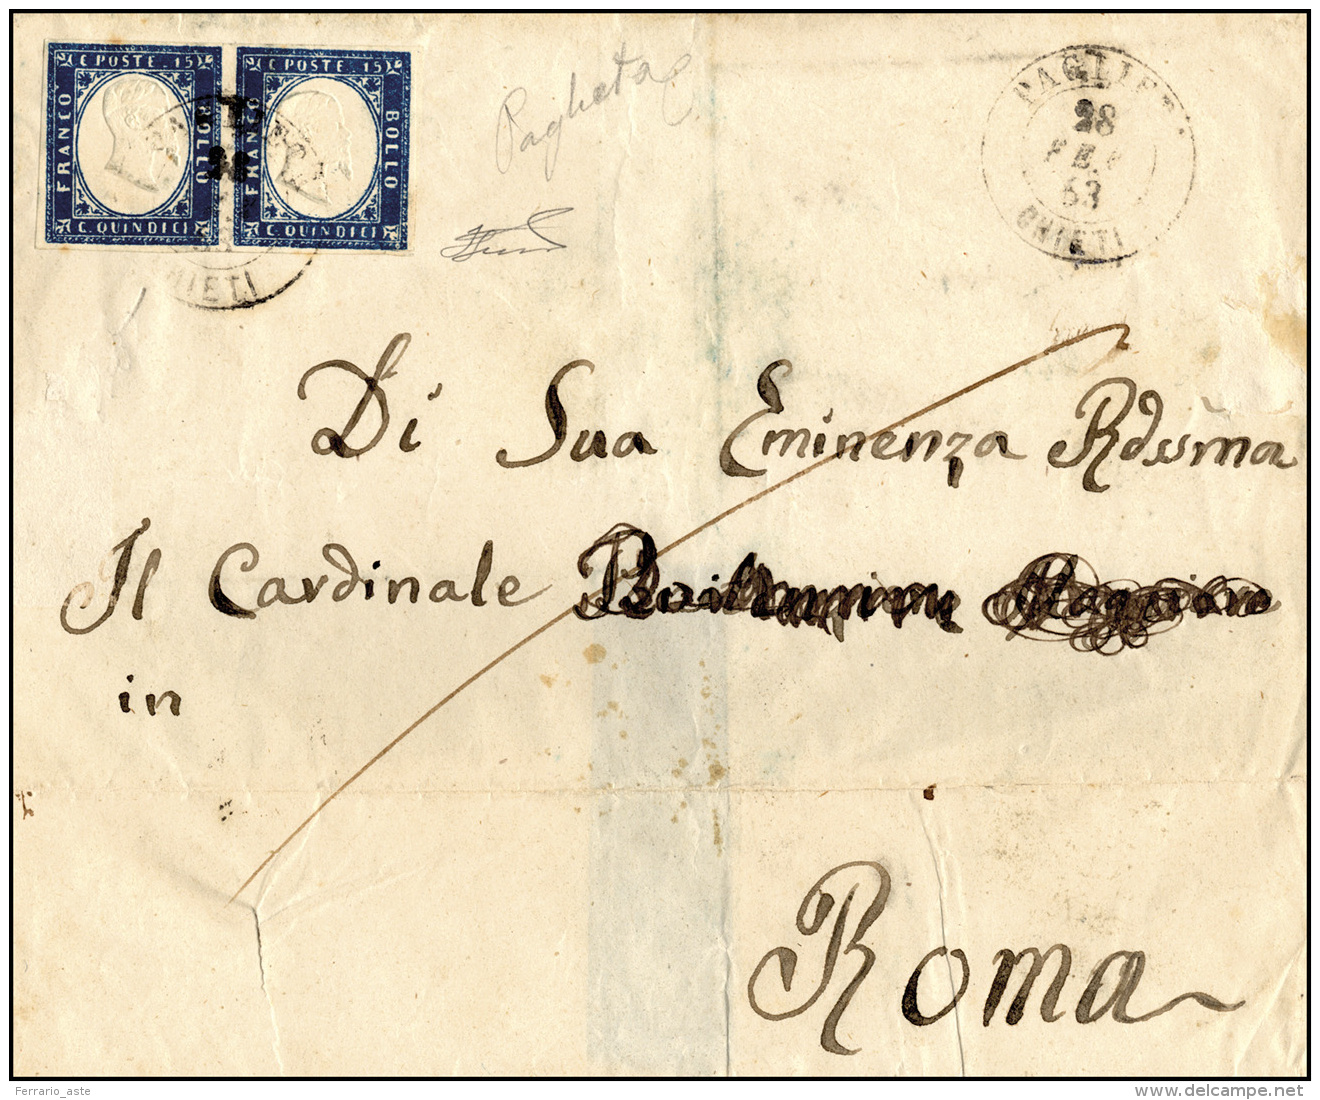 C POSTE . 15 C POSTE . 15
FRANCO BOLLO FRANCO BOLLO
C. QUINDICI C. QUINDICI
CHIETI
Paglieta
PAGLIET
28
FEB
63
CHIETI
Di Sua Eminenza Rdssma
Il Cardinale
in
Roma
Ferrario_aste
delcampe.net